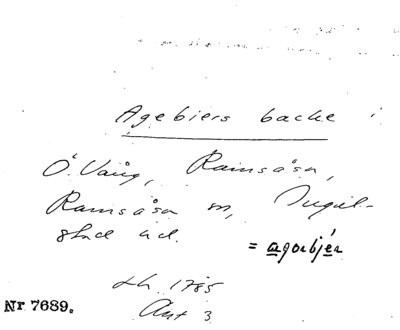 Agebiers backe
Ö. Vång, Ramsåsa,
Ramsåsa sn, Ingel-
stad hd.
= agorbjér
Lh. 1785
Akt 3
Nr 7689.